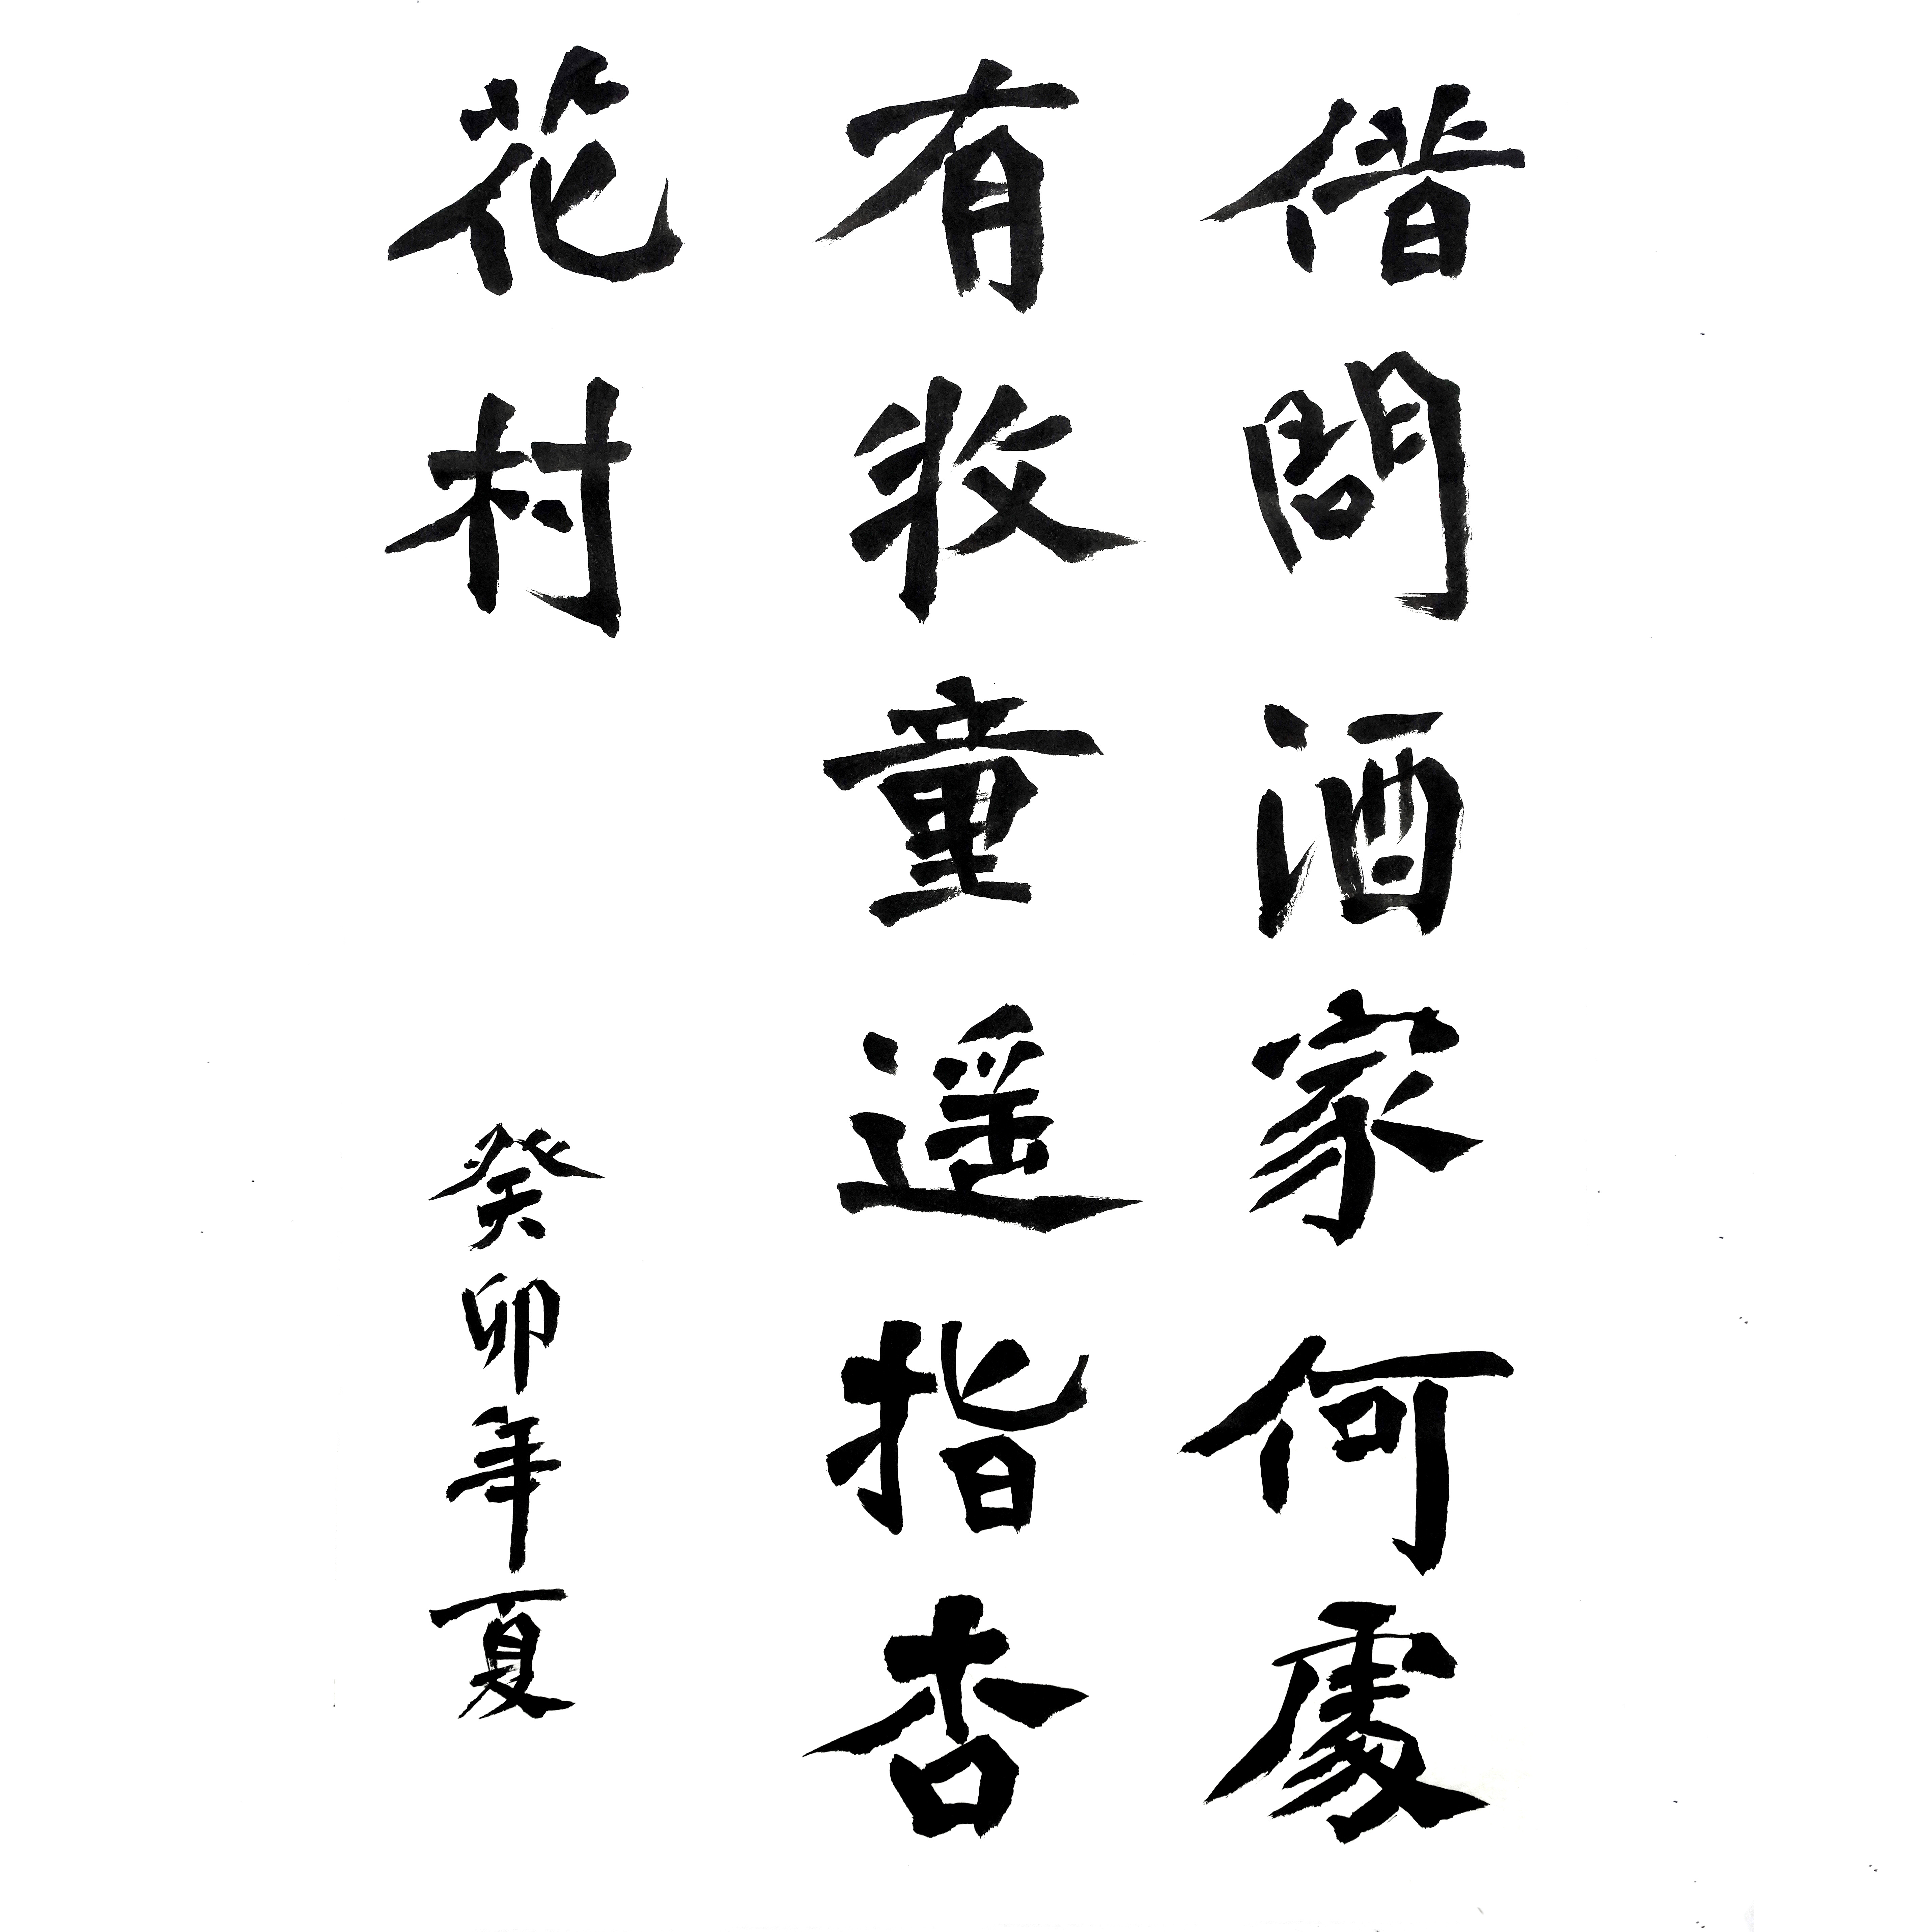 借問酒家何處
有牧童遥指杏
花村
癸卯年夏